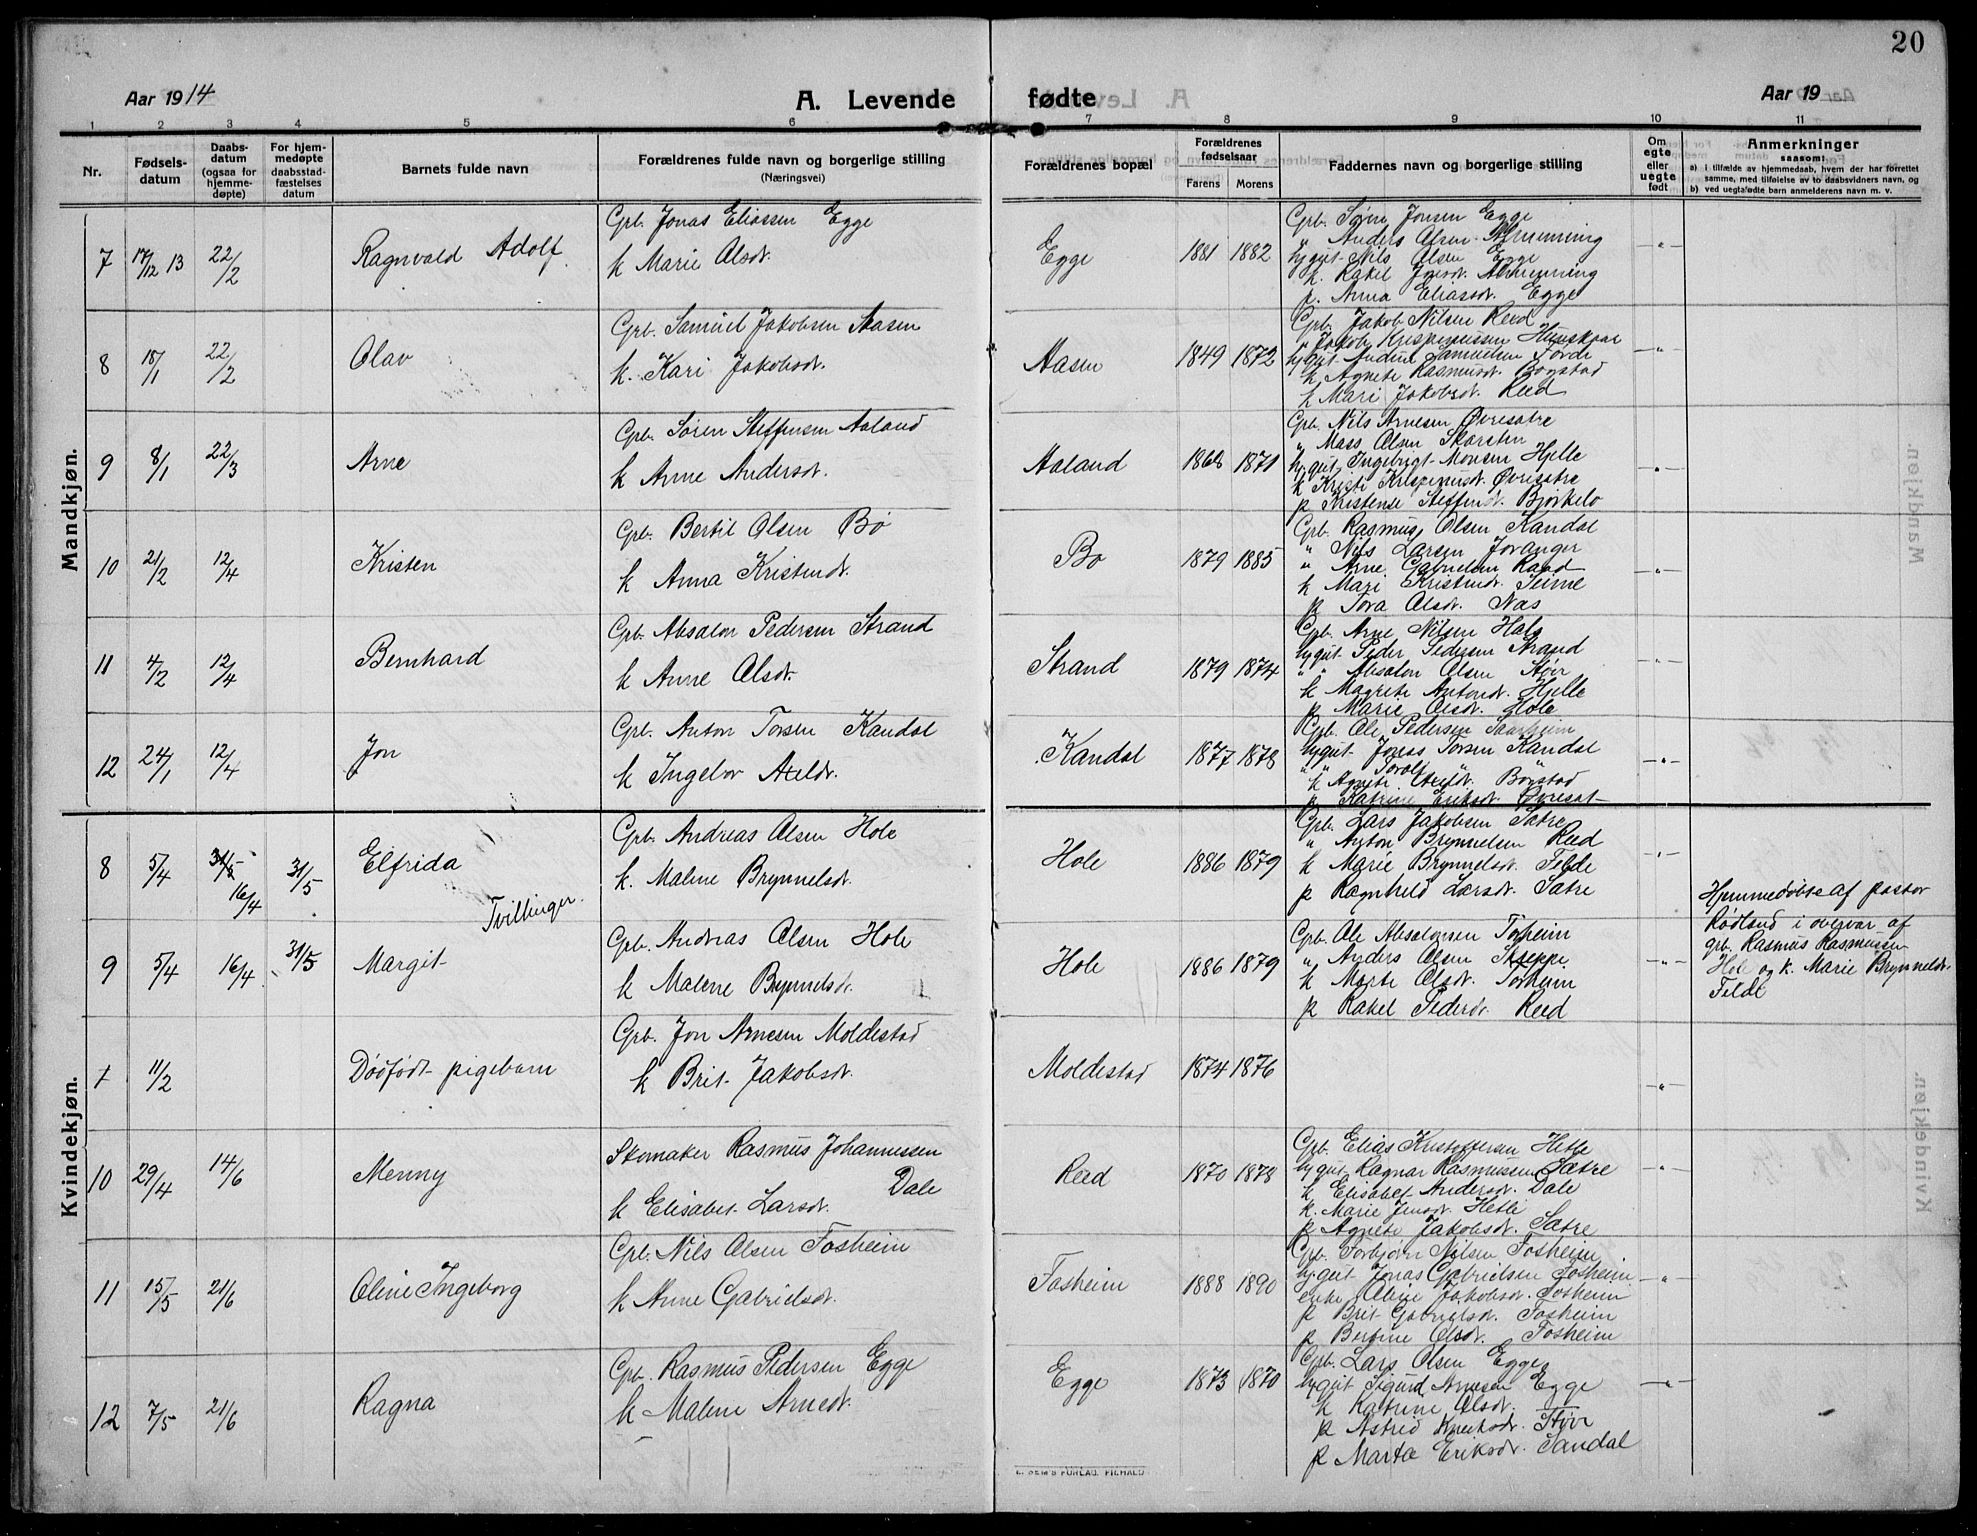 20
Aar 1914
A. Levende fødte
Aar 19
1 2 3 4 5 6 7 8 9 10 11
Nr.
Fødsels-
datum
Daabs-
datum
(ogsaa for
hjemme-
døpte)
For hjem-
medøpte
daabsstad-
fæstelses
datum
Barnets fulde navn
Forældrenes fulde navn og borgerlige stilling
(Næringsvei)
Forældrenes bopæl
Forældrenes
fødselsaar
Farens Morens
Faddernes navn og borgerlige stilling
Om
egte
eller
uegte
født
Anmerkninger
saasom:
a) i tilfælde av hjemmedaab, hvem der har forrettet
samme, med tilføielse av to daabsvidners navn, og
b) ved uegtefødte barn anmelderens navn m. v.
Mandkjøn.
7 17/12 13 22/2 Ragnvald Adolf
Grb. Jonas Eliassen Egge
k Marie Olsdt.
Egge 1881 1882
Grb. Sørin Jonsen Egge
" Anders Olsen
Nils Olsen Egge
k. Rakel Jonsdt.
p. Anna Eliasdt. Egge
8 15/1 22/2 Olav
Grb. Samuel Jakobsen Aasen
k. Kari Jakobsdt.
Aasen 1849 1872
Grb. Jakob Nilsen Reed
" Jakob Krispinussen Hunskaar
Samuelsen Førde
k Agnete Rasmusdt. Bogstad
k Mari Jakobsdt. Reed
9 8/1 22/3 Arne
Grb. Søren Steffensen Aaland
k Anne Andersdt.
Aaland 1868 1871
Grb. Nils Arnesen Øvresætre
" Mass Olsen Skarsten
Ingebrigt Monsen Hjelle
k Kristi Krispinusdt. Øvresætre
p Kristense Steffensdt. Bjørkelo
10 21/2 12/4 Kristen
Grb. Bertil Olsen Bø
k Anna Kristensdt.
Bø 1879 1885
Grb. Rasmus Olsen Kandal
" Nils Larsen Joranger
" Arne Gabrielsen Rand
k Mari Kristensdt. Seime
p Tora Olsdt. Næs
11 4/2 12/4 Bernhard
Grb. Absalon Pedersen Strand
k Anne Olsdt.
Strand 1879 1874
Grb. Arne Nilsen Hole
ugift Peder Pedersen Strand
" " Absalon Olsen Støv
k Magrete Antondt. Hjelle
p Marie Olsdt. Hole
12 24/1 12/4 Jon
Grb. Anton Torsen Kandal
k Ingebor Axeldt.
Kandal 1877 1878
Grb. Ole Pedersen Saarheim
ugift Jonas Torsen Kandal
" " Torolf " "
k Agnete Axeldt. Bogstad
p Katrine Eriksdt. Øvresæt
Kvindekjøn.
8 5/4 31/5 16/4 31/5 Elfrida
Grb. Andreas Olsen Hole
k. Malene Brynnelsdt.
Hole 1886 1879
Grb. Lars Jakobsen Sætre
" Anton Brynnelsen Reed
k Marie Brynnelsdt. Felde
p Ragnhild Larsdt. Sætre
Tvillinger.
9 5/4 16/4 31/5 Margit
Grb. Andreas Olsen Hole
k Malene Brynnelsdt.
Hole 1886 1879
Grb. Ole Absalonsen Torheim
" Anders Olsen Skeppe
k Marte Olsdt. Torheim
p Rakel Pedersdt. Reed
Hjemmedøbte af pastor
Rødland i overvær af
grb. Rasmus Rasmussen
Hole og k. Marie Brynneldt.
Felde
1 11/2 Dødfødt pigebarn
Grb. Jon Arnesen Moldestad
k Brit Jakobsdt.
Moldestad 1874 1876
10 29/4 14/6 Menny
Skomaker Rasmus Johannessen
Dale
k Elisabet Larsdt.
Reed 1870 1878
Grb. Elias Kristoffersen Hetle
ugift Ragnar Rasmussen Sætre
k Elisabet Andersdt. Dale
k. Marie Jensdt. Hetle
p Agnete Jakobsdt. Sætre
11 15/5 21/6 Oline Ingeborg
Grb. Nils Olsen Fosheim
k Anne Gabrielsdt.
Fosheim 1888 1890
Grb. Torbjørn Nilsen Fosheim
ugift Jonas Gabrielsen Fosheim
enke Oline Jakobsdt. Fosheim
p Brit Gabrielsdt. Fosheim
p Bertine Olsdt. Fosheim
12 7/5 21/6 Ragna
Grb. Rasmus Pedersen Egge
k Malene Arnedt.
Egge 1873 1870
Grb. Lars Olsen Egge
ugift Sigurd Arnesen Egge
k Katrine Olsdt.
p Astrid Støv
p Marta Eriksdt. Sandal